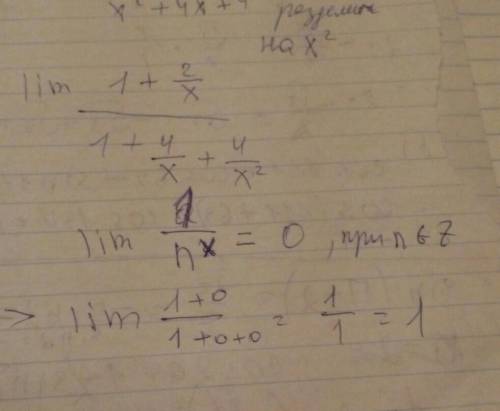 x² + 4x + 4 разделим
на x²
lim (1 + 2/x) / (1 + 4/x + 4/x²)
lim 1/nˣ = 0 , при n ∈ Z
> lim (1+0)/(1+0+0) = 1/1 = 1